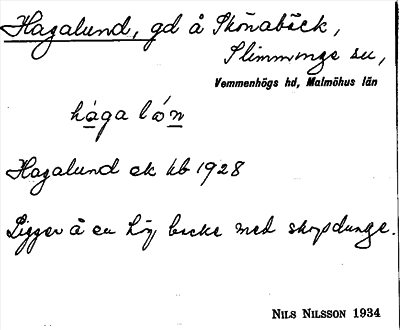 Hagalund, gd å Skönabäck,
Slimminge sn,
Vemmenhögs hd, Malmöhus län
håga lón
Hagalund ek kb 1928
Ligger å en hög backe med skogsdunge.
NILS NILSSON 1934